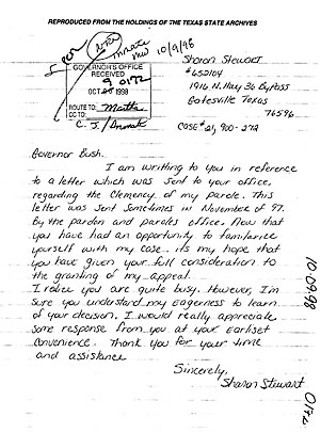 REPRODUCED FROM THE HOLDINGS OF THE TEXAS STATE ARCHIVES
inmate
10/9/98
GOVERNOR'S OFFICE
RECEIVED
OCT 1998
ROUTE TO: Martha
CC TO:
C. J. / Inmate
Sharon Stewart
#652104
1916 N. Hwy 36 ByPass
Gatesville Texas
76596
CASE# 21,900-272
Governor Bush.
I am writting to you in reference
to a letter which was sent to your office,
regarding the Clemency of my parole. This
letter was sent sometimes in November of 97.
By the pardon and paroles office. Now that
you have had an opportunity to familarize
yourself with my case. its my hope that
you have given your full consideration to
the granting of my appeal.
I realize you are quite busy. However, I'm
sure you understand my eagerness to learn
of your decision. I would really appreciate
some response from you at your earliset
convenience. Thank you for your time
and assistance
Sincerely,
Sharon Stewart
10-09-98